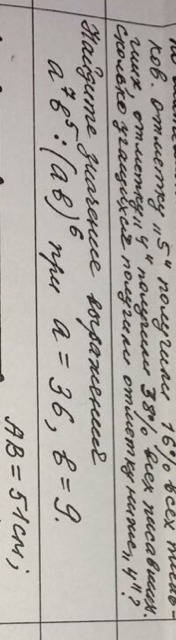 ков. отметку "5" получили 16% всех писав-
ших, отметку "4" получили 38% всех писавших.
сколько учащихся получили отметку ниже "4"?
Найдите значение выражения
a⁷b⁵ : (ab)⁶ при a = 36, b = 9.
AB = 51см;